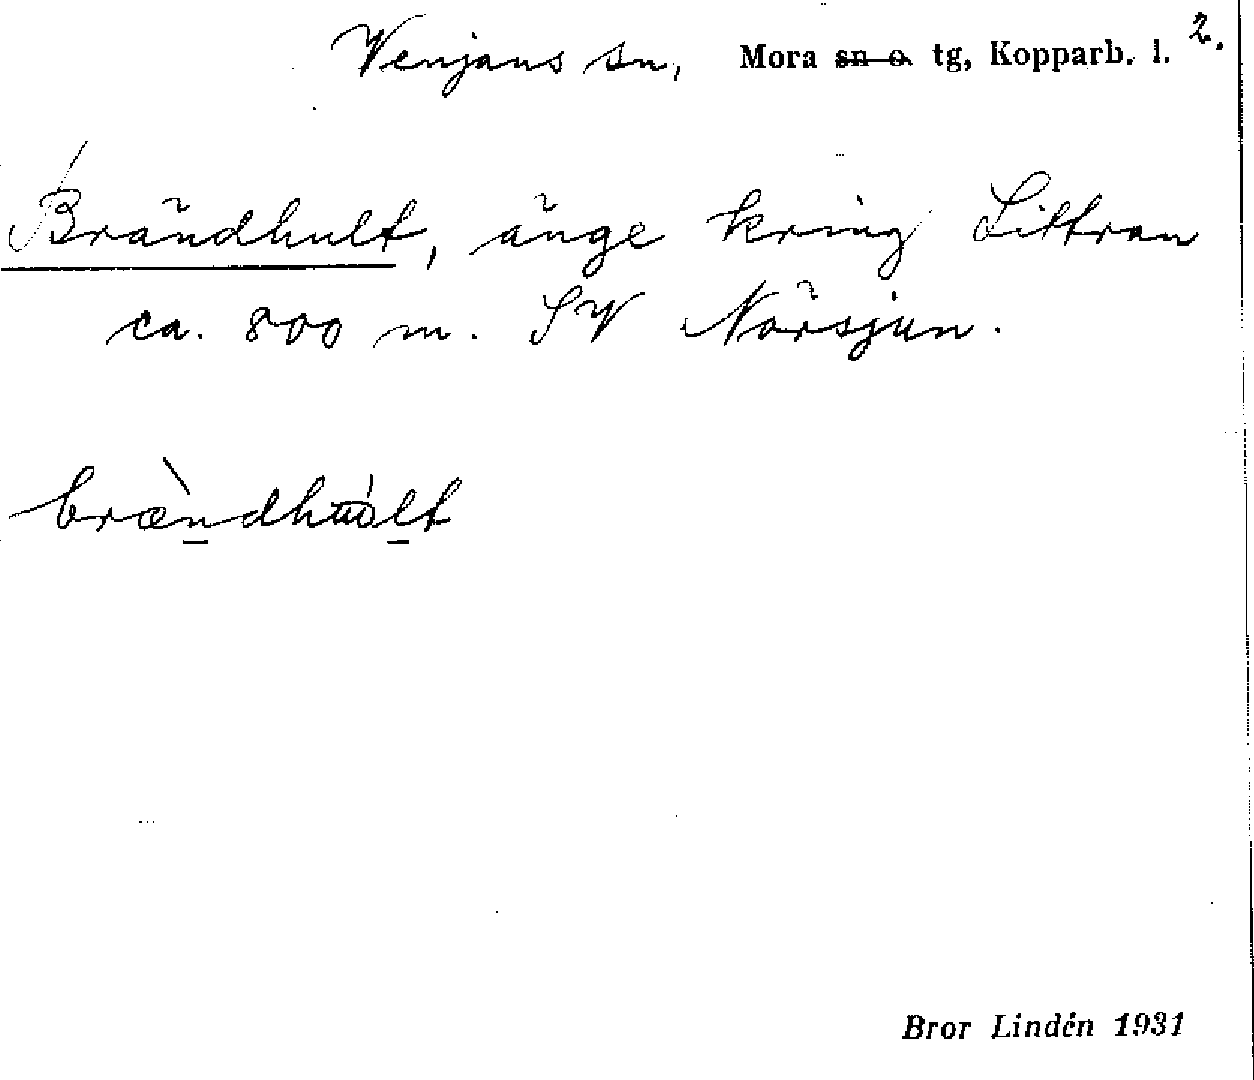 Venjans sn, Mora sn o. tg, Kopparb. l. 2.
Brändhult, änge kring Littran
ca. 800 m. SV Nörsjun.
brændhuolt
Bror Lindén 1931